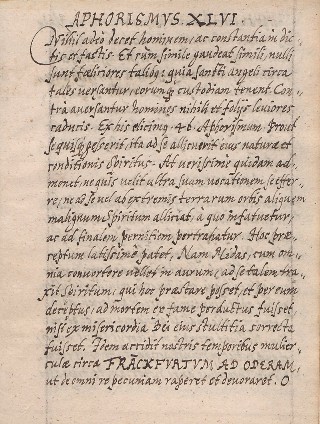 APHORISMVS. XLVI.
Nihil adeo decet hominem, ac constantia in dic-
tis et factis. Et cum simile gaudeat simili, nulli
sunt fœliciores talibq; quia sancti angeli circa
tales versantur, eorumq; custodiam tenent. Con-
trà aversantur homines nihili et folijs leviores
caducis. Ex his elicimq; 46. Aphorismum. Prout
se quisq; gesserit, ita ad se alliciet eius naturæ et
conditionis Spiritus. At verissimè quidam ad
monet, ne quis velit ultra suam vocationem se effer-
re, ne ad se vel ab extremis terrarum oris aliquem
malignum Spiritum alliciat, a quo infatuetur,
ac ad finalem pernitiem pertrahatur. Hoc præ-
ceptum latissimè patet. Nam Midas, cum om-
nia convertere vellet in aurum, ad se talem tra-
xit Spiritum, qui hoc præstare posset, et per eum
deceptus, ad mortem ex fame perductus fuisset,
nisi ex misericordia Dei eius stultitia correcta
fuisset. Idem accidit nostris temporibus mulier-
culæ circa FRANCKFVRTVM AD ODERAM,
ut de omni re pecuniam raperet et devoraret. O